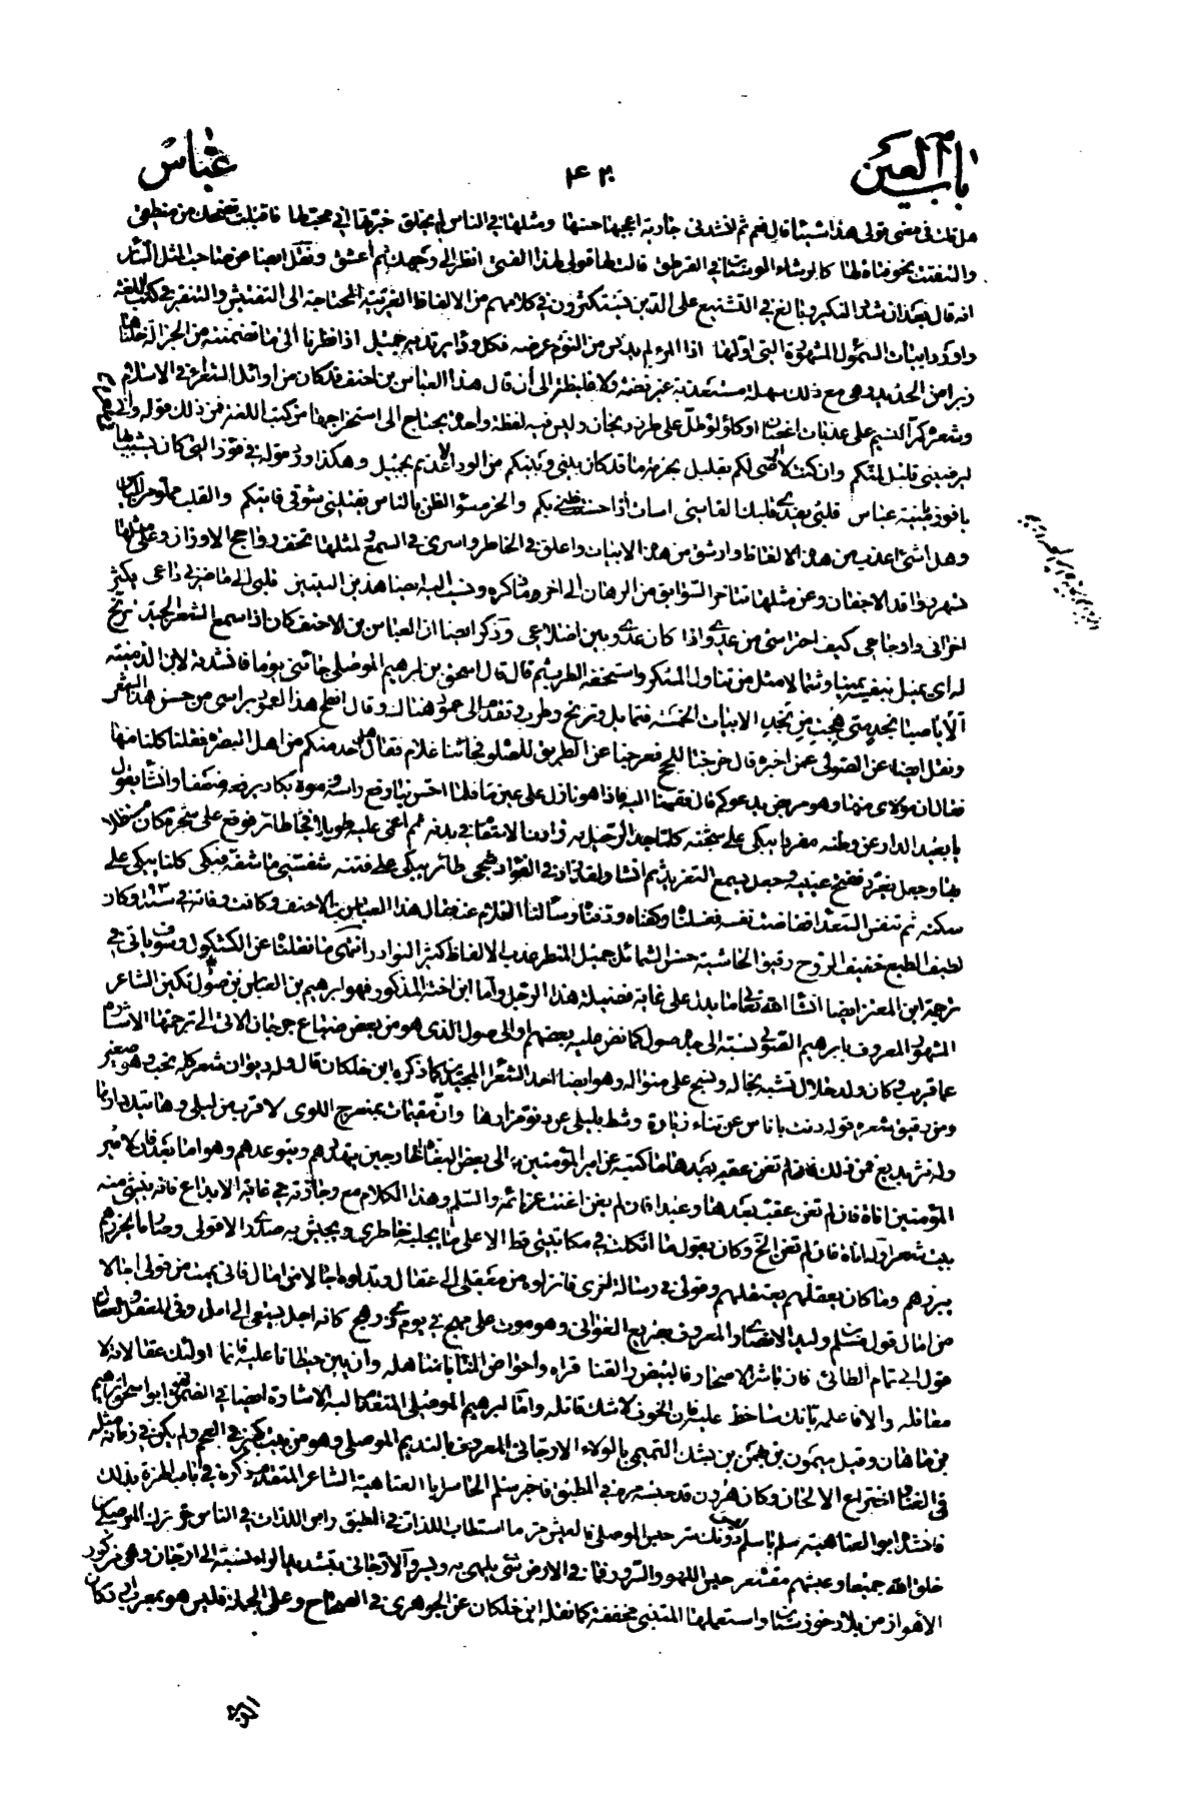 باب العين
۴۳۰
عباس
هل قلت في معنى قولي هذا شيئا قال نعم ثم انشدني جارية اعجبها حسنها ومثلها في الناس لم يخلق خبرتها اني محب لها فاقبلت تضحك من منطقي
والتفتت نحو فتاة لها كالرشاء الوسنان في القرطق قالت لها قولي لهذا الفتى انظر الى وجهك ثم اعشق ونقل ايضا عن صاحب المثل السائر
انه قال بعد ان شدد النكير وبالغ في التشنيع على الذين يستكثرون في كلامهم من الالفاظ الغريبة المحتاجة الى التفتيش والتنقير في كتب اللغة
واورد ابيات السموأل المشهورة التي اولها اذا المرء لم يدنس من اللؤم عرضه فكل رداء يرتديه جميل اذا نظرنا الى ما تضمنته من الجزالة خلناها
زبرا من الحديد وهي مع ذلك سهلة مستعذبة غير فظة ولا غليظة الى أن قال هذا العباس بن احنف قد كان من اوائل الشعراء في الاسلام
وشعره كمر النسيم على عذبات اغصان او كلؤلؤ طل على طرر ريحان وليس فيه لفظة واحدة يحتاج الى استخراجها من كتب اللغة فمن ذلك قوله واني
ليرضيني قليل نوالكم وان كنت لا ارضى لكم بقليل بحرمة ما قد كان بيني وبينكم من الود الا عدتم بجميل وهكذا ورد قوله في فوز التي كان يشبب بها
يا فوز يا منية عباس قلبي يفدي قلبك القاسي اسأت اذ احسنت ظني بكم والحزم سوء الظن بالناس يقلقني شوقي فاتيكم والقلب مملو من الياس
وهل شئ اعذب من هذه الالفاظ وارشق من هذه الابيات واعلق في الخاطر واسرى في السمع ولمثلها تخف رواجح الاوزان وعلى مثلها
تسهر رواقد الاجفان وعن مثلها تتاخر السوابق من الرهان الى اخر ما ذكره ونسب اليه ايضا هذين البيتين قلبي الى ما ضرني داعي يكثر
احزاني واوجاعي كيف احتراسي من عدوي اذا كان عدوي بين اضلاعي وذكر ايضا ان العباس بن الاحنف كان اذا سمع الشعر الجيد ترنح
له اى يميل بنفسه يمينا وشمالا مثل من تناول المسكر واستخفه الطرب ثم قال قال اسحق بن ابرهيم الموصلي جائني يوما فانشدته لابن الدمينة
ألا يا صبا نجد متى هجت من نجد الابيات الخمسة فتمايل وترنح وطرب وتقدم الى عمود هناك وقال انطح هذا العمود براسي من حسن هذا الشعر
ونقل ايضا عن الصولي عمن اخبره قال خرجنا للحج فعرجنا عن الطريق للصلوة فجائنا غلام فقال هل احد منكم من اهل البصرة فقلنا كلنا منها
فقال ان مولاى منها وهو مريض يدعوكم قال فقمنا اليه فاذا هو نازل على عين ماء فلما احس بنا رفع راسه وهو لا يكاد يرفعه ضعفا وانشأ يقول
يا بعيد الدار عن وطنه مفردا يبكي على شجنه كلما جد الرحيل به زادت الاسقام في بدنه ثم اغمى عليه طويلا فجاء طائر فوقع على شجرة كان مستظلا
بها وجعل يغرد ففتح عينيه وجعل يسمع التغريد ثم انشا ولقد زاد في الفؤاد شجى طائر يبكي على فننه شفه ما شفني فبكى كلنا يبكي على
سكنه ثم تنفس الصعداء ففاضت نفسه فغسلناه وكفناه ودفناه وسألنا الغلام عنه فقال هذا العباس بن الاحنف وكانت وفاته في سنة ١٩٣ وكان
لطيف الطبع خفيف الروح رقيق الحاشية حسن الشمائل جميل المنظر عذب الالفاظ كثير النوادر انتهى ما نقلناه عن الكشكول وسوف ياتي في
ترجمة ابن المعتز ايضا انشاء الله تعالى ما يدل على غاية فضيلة هذا الرجل وأما ابن اخته المذكور فهو ابرهيم بن العباس بن صول تكين الشاعر
المشهور المعروف بابرهيم الصولي نسبة الى جده صول كما نص عليه بعضهم او الى صول الذى هو من بعض ضياع جرجان الاتي الى ترجمتها الاشارة
عما قريب كان ولد خلال تشبه بخاله ونسج على منواله وهو ايضا احد الشعراء المجيدين كما ذكره ابن خلكان قال وله ديوان شعر كله نخب وهو صغير
ومن رقيق شعره قوله دنت باناس عن تناء زيارة وشط بليلى عن دنو مزارها وان مقيمات بمنعرج اللوى لاقرب من ليلى وهاتيك دارها
وله نثر بديع فمن ذلك ما كتبه عن امير المؤمنين الى بعض البغاة الخارجين يتهددهم ويتوعدهم وهو اما بعد فان لامير
المؤمنين اناة فان لم تغن عقب بعدها وعيدا فان لم يغن اغنت عزائمه والسلام وهذا الكلام مع وجازته في غاية الابداع فانه ينشئ منه
بيت شعر اوله اناة فان لم تغن الخ وكان يقول ما اتكلت في مكاتبتي قط الا على ما يجلبه خاطري ويجيش به صدرى الا قولي وصار ما يحرزهم
يبرزهم وما كان يعقلهم يعتقلهم وقولي في رسالة اخرى فانزلوه من معقل الى عقال وبدلوه اجالا من امال فاني الممت من قولي اجالا
من امال قول مسلم بن وليد الانصاري المعروف بصريع الغواني وهو موف على مهج في يوم ذى رهج كانه اجل يسعى الى امل وفي المعقل والعقال
قول ابي تمام الطائي فان باشر الاصحار فالبيض والقنا قراه واحواض المنايا مناهله وان يبن حيطانا عليه فانما اولئك عقالاته لا
معاقله والا فاعلمه بانك ساخط عليه فان الخوف لا شك قاتله وأما ابرهيم الموصلي المتقدم اليه الاشارة ايضا في الضمن فهو ابو اسحق ابرهيم
بن ماهان وقيل ميمون بن بهمن بن نسك التميمي بالولاء الارجاني المعروف بالنديم الموصلي وهو من بيت كبير في العجم ولم يكن في زمانه مثله
في الغناء اختراع الالحان وكان هرون قد حبسه مرة في المطبق فاخبر سلم الخاسر ابا العتاهية الشاعر المتقدم ذكره في باب الهمزة بذلك
فانشد ابو العتاهية سلم يا سلم ليس دونك سر حبس الموصلي فالعيش مر ما استطاب اللذات في المطبق راس اللذات في الناس حر ترك الموصلي من
خلق الله جميعا وعيشهم مقشعر حبس اللهو والسرور فما في الارض شئ يلهى به ويسر والارجاني بتشديد الراء نسبة الى ارجان وهي من كور
الأهواز من بلاد خوزستان واستعملها المتنبي مخففة كما نقله ابن خلكان عن الجوهري في الصحاح وعلى الجملة فليس هو بمعرب